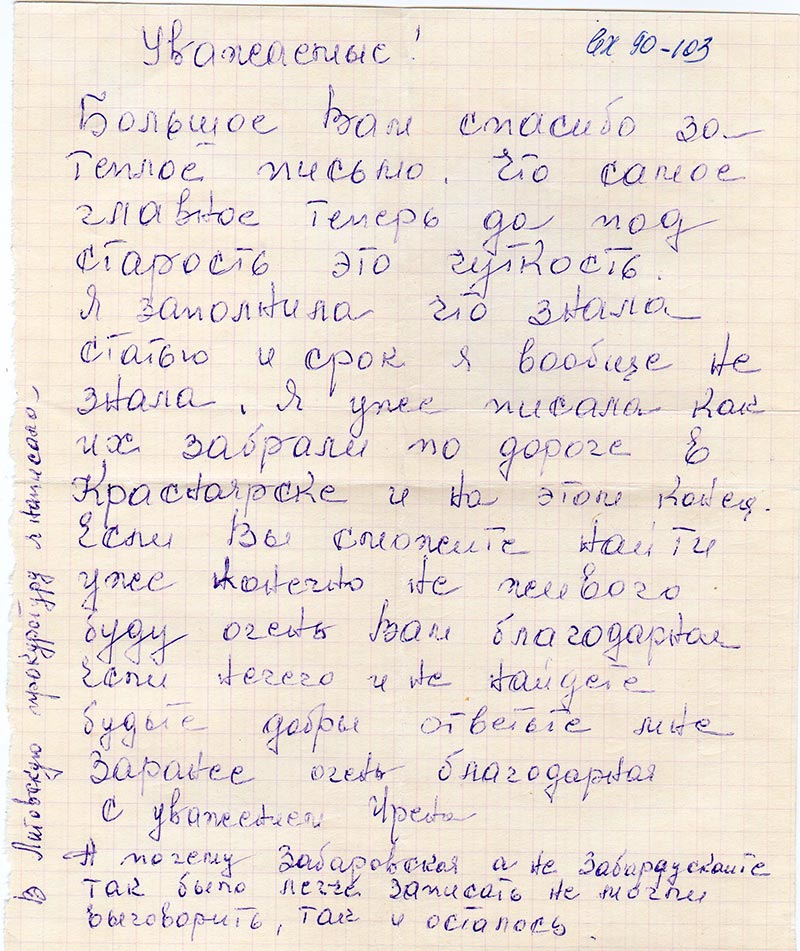 Уважаемые!
вх 90-103
Большое Вам спасибо за
теплое письмо. Что самое
главное теперь да под
старость это чуткость.
Я заполнила что знала
статью и срок я вообще не
знала. Я уже писала как
их забрали по дороге в
Красноярске и на этом конец.
Если Вы сможите найти
уже конечно не живого
буду очень Вам благодарная
Если нечего и не найдете
будьте добры ответьте мне
Заранее очень благодарная
С уважением Ирена
А почему Забаровская а не Забараускайте
так было легче записать не могли
выговорить, так и осталось.
В Литовскую прокуратуру я написала